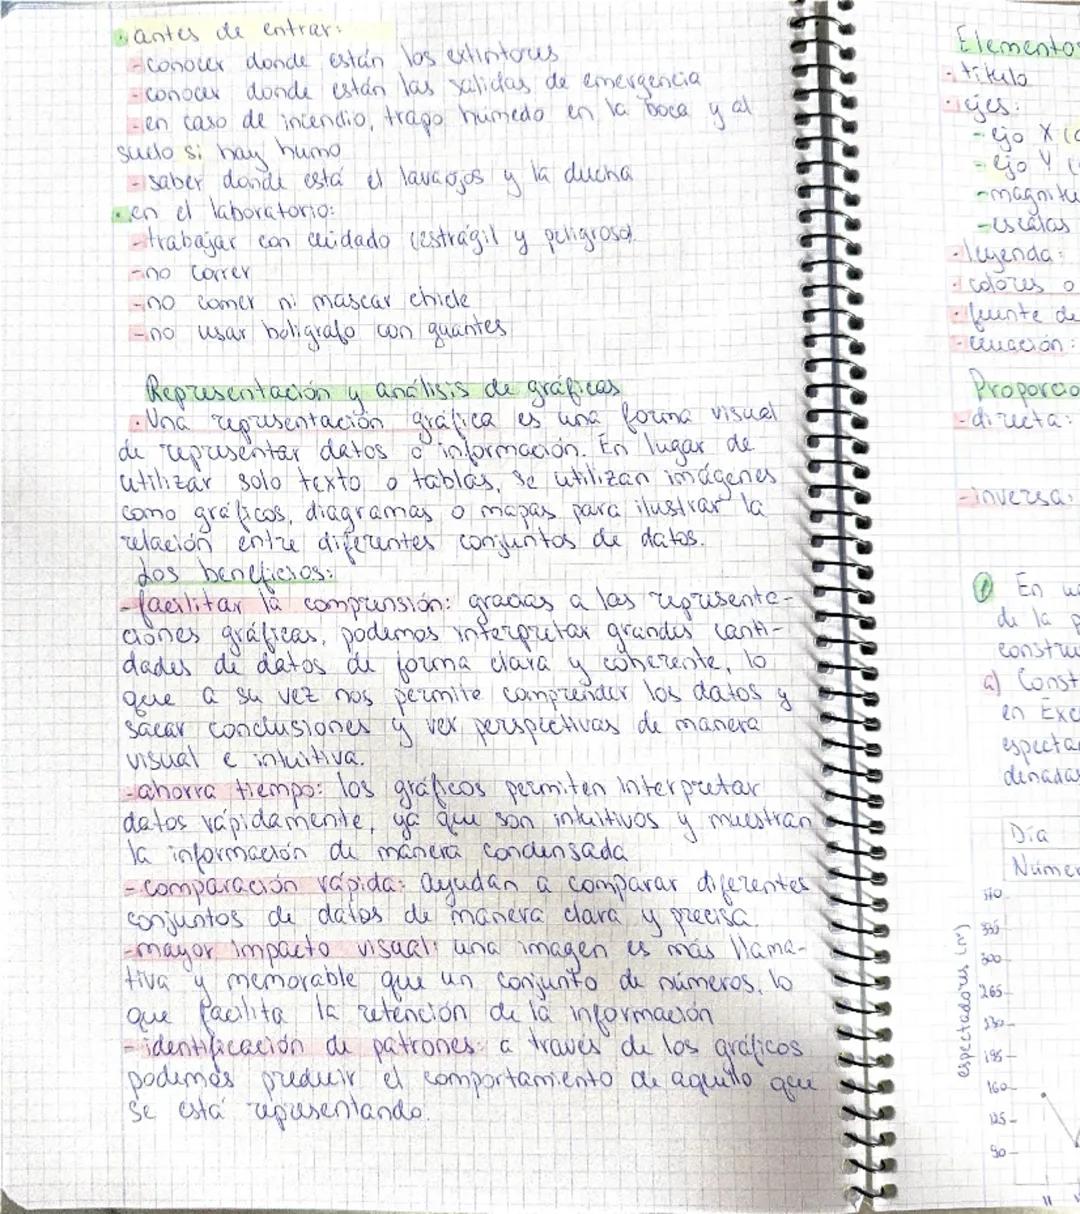 · antes de entrar:
-conocer donde están los extintores
-conocer donde están las salidas de emergencia
-en caso de incendio, trapo húmedo en la boca y al
suelo si hay humo
-saber donde está el lavaojos y la ducha
· en el laboratorio:
-trabajar con cuidado (es frágil y peligroso)
-no correr
-no comer ni mascar chicle
-no usar boligrafo con guantes
Representación y análisis de gráficas
· Una representación gráfica es una forma visual
de representar datos o información. En lugar de
utilizar solo texto o tablas, se utilizan imágenes
como gráficos, diagramas o mapas para ilustrar la
relación entre diferentes conjuntos de datos.
Los beneficios:
-facilitar la comprensión: gracias a las representa-
ciones gráficas, podemos interpretar grandes canti-
dades de datos de forma clara y coherente, lo
que a su vez nos permite comprender los datos y
sacar conclusiones y ver perspectivas de manera
visual e intuitiva.
-ahorra tiempo: los gráficos permiten interpretar
datos rápidamente, ya que son intuitivos y muestran
la información de manera condensada
-comparación rápida: ayudan a comparar diferentes
conjuntos de datos de manera clara y precisa.
-mayor impacto visual: una imagen es más llama-
tiva y memorable que un conjunto de números, lo
que facilita la retención de la información
-identificación de patrones: a través de los gráficos
podemos predecir el comportamiento de aquello que
se está representando.
Elemento
· título
· ejes:
-eje X (
-eje Y (
-magnitu
-escalas
· leyenda:
· colores o
· fuente de
· ecuación:
Proporcio
-directa:
-inversa:
① En
de la p
constru
a) Const
en Exc
espectad
denadas
Día
Númer
espectadores (nº)
370
335
300
265
230
195
160
125
90